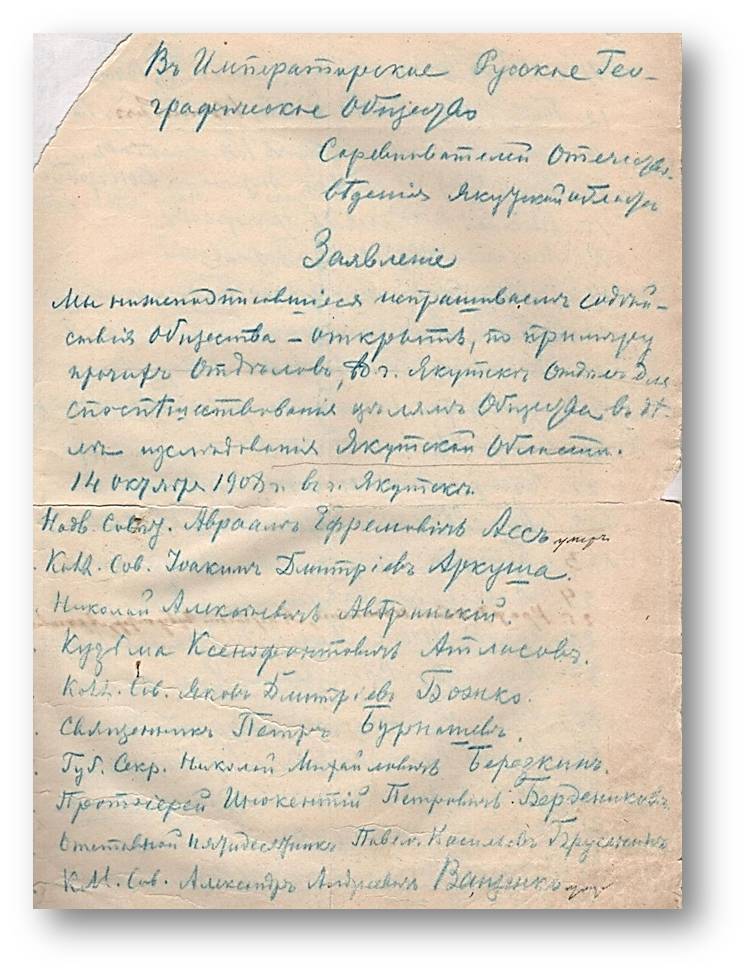 Въ Императорское Русское Гео-
графическое Общество
Соревнователей Отечество-
вѣдѣнія Якутской области
Заявленіе
Мы нижеподписавшіеся испрашиваемъ содѣй-
ствія Общества – открыть, по примѣру
прочихъ Отдѣловъ, въ г. Якутскѣ Отдѣлъ для
споспѣшествованія цѣлямъ Общества въ дѣ-
лѣ изслѣдованія Якутской Области.
14 октября 1908 г. въ г. Якутскѣ.
Надв. Совѣт. Авраамъ Ефремовичъ Ассъ умеръ
Колл. Сов. Іоакимъ Дмитріевъ Аркуша.
Николай Алексѣевичъ Августинскій.
Кузьма Ксенофонтовичъ Атласовъ.
Колл. Сов. Яковъ Дмитріевъ Божко.
Священникъ Петръ Бурнашевъ.
Губ. Секр. Николай Михайловичъ Березкинъ.
Протоіерей Инокентій Петровичъ Берденниковъ.
Отставной пятидесятникъ Павел. Васильевъ
К.М. Сов. Александръ Андреевичъ умер